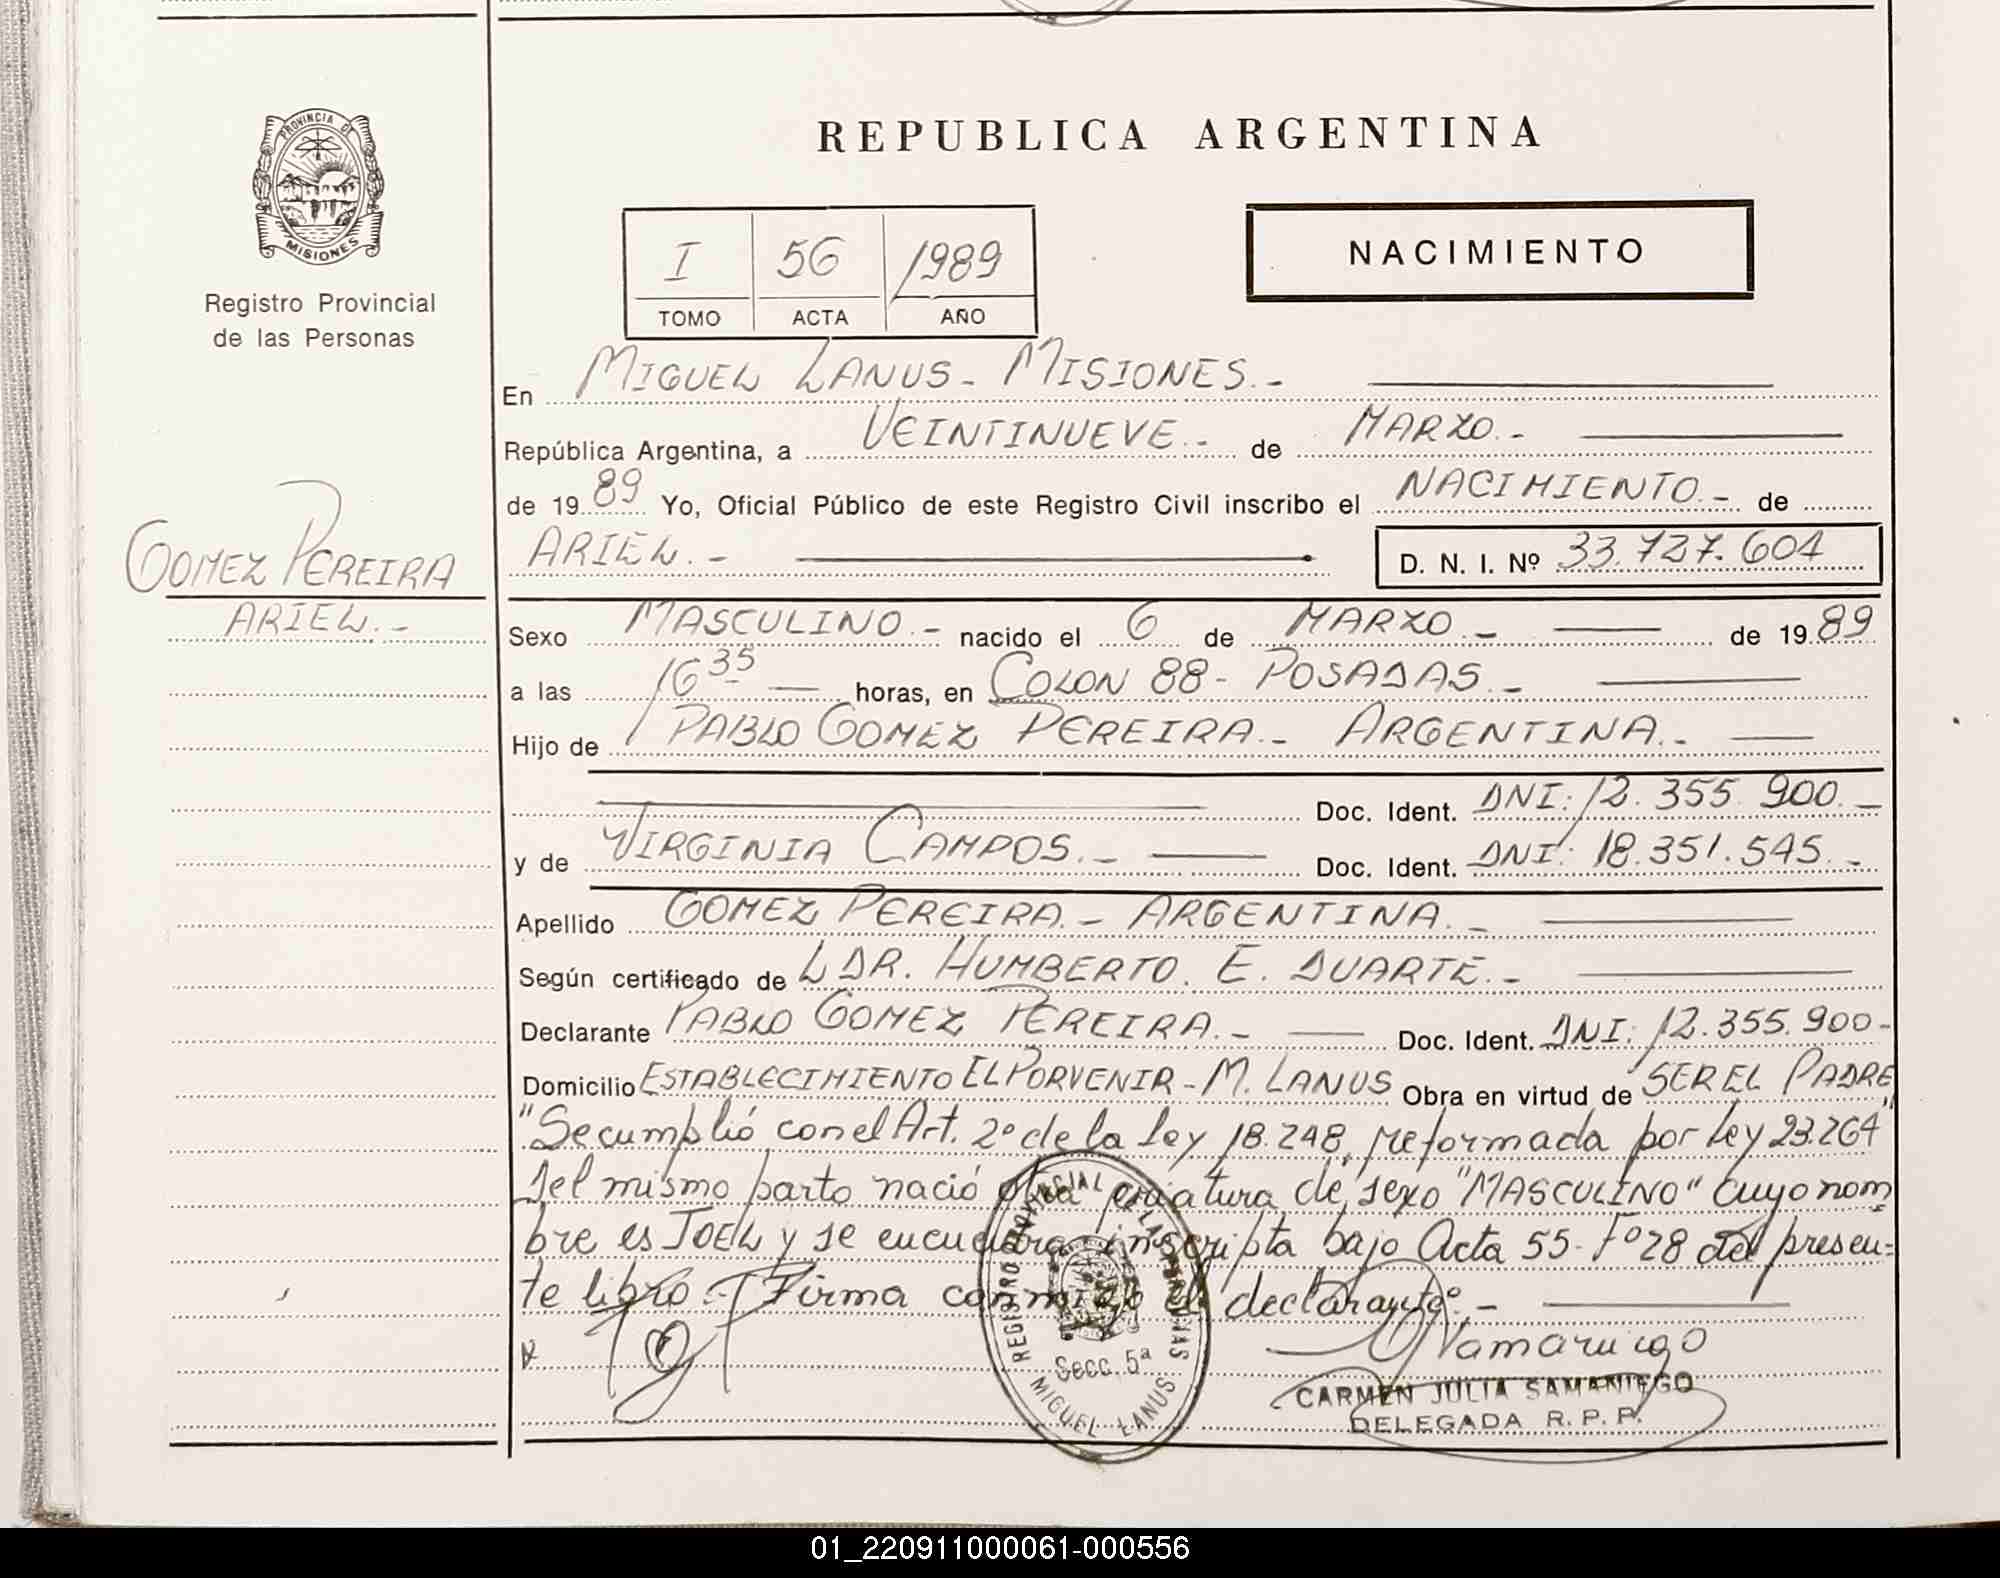 PROVINCIA DE
MISIONES
Registro Provincial
de las Personas
GOMEZ PEREIRA
ARIEL.-
REPUBLICA ARGENTINA
I 56 1989
TOMO ACTA AÑO
NACIMIENTO
En MIGUEL LANUS - MISIONES.-
República Argentina, a VEINTINUEVE.- de MARZO.-
de 1989 Yo, Oficial Público de este Registro Civil inscribo el NACIMIENTO.- de
ARIEL.- D. N. I. Nº 33.727.601
Sexo MASCULINO.- nacido el 6 de MARZO.- de 1989
a las 16 35 horas, en COLON 88 - POSADAS.-
Hijo de PABLO GOMEZ PEREIRA.- ARGENTINA.-
Doc. Ident. DNI: 12.355.900.-
y de VIRGINIA CAMPOS.- Doc. Ident. DNI: 18.351.545.-
Apellido GOMEZ PEREIRA.- ARGENTINA.-
Según certificado de L DR. HUMBERTO. E. DUARTE.-
Declarante PABLO GOMEZ PEREIRA.- Doc. Ident. DNI: 12.355.900-
Domicilio ESTABLECIMIENTO EL PORVENIR - M. LANUS Obra en virtud de SER EL PADRE
"Se cumplió con el Art. 2º de la ley 18.248, reformada por ley 23.264"
Del mismo parto nació otra criatura de sexo "MASCULINO" cuyo nom
bre es JOEL y se encuentra inscripta bajo Acta 55-Fº 28 del presen=
te libro.- Firma conmigo el declarante.-
REGISTRO PROVINCIAL DE LAS PERSONAS
Secc. 5ª
MIGUEL LANUS
Samaniego
CARMEN JULIA SAMANIEGO
DELEGADA R. P. P.
01_220911000061-000556